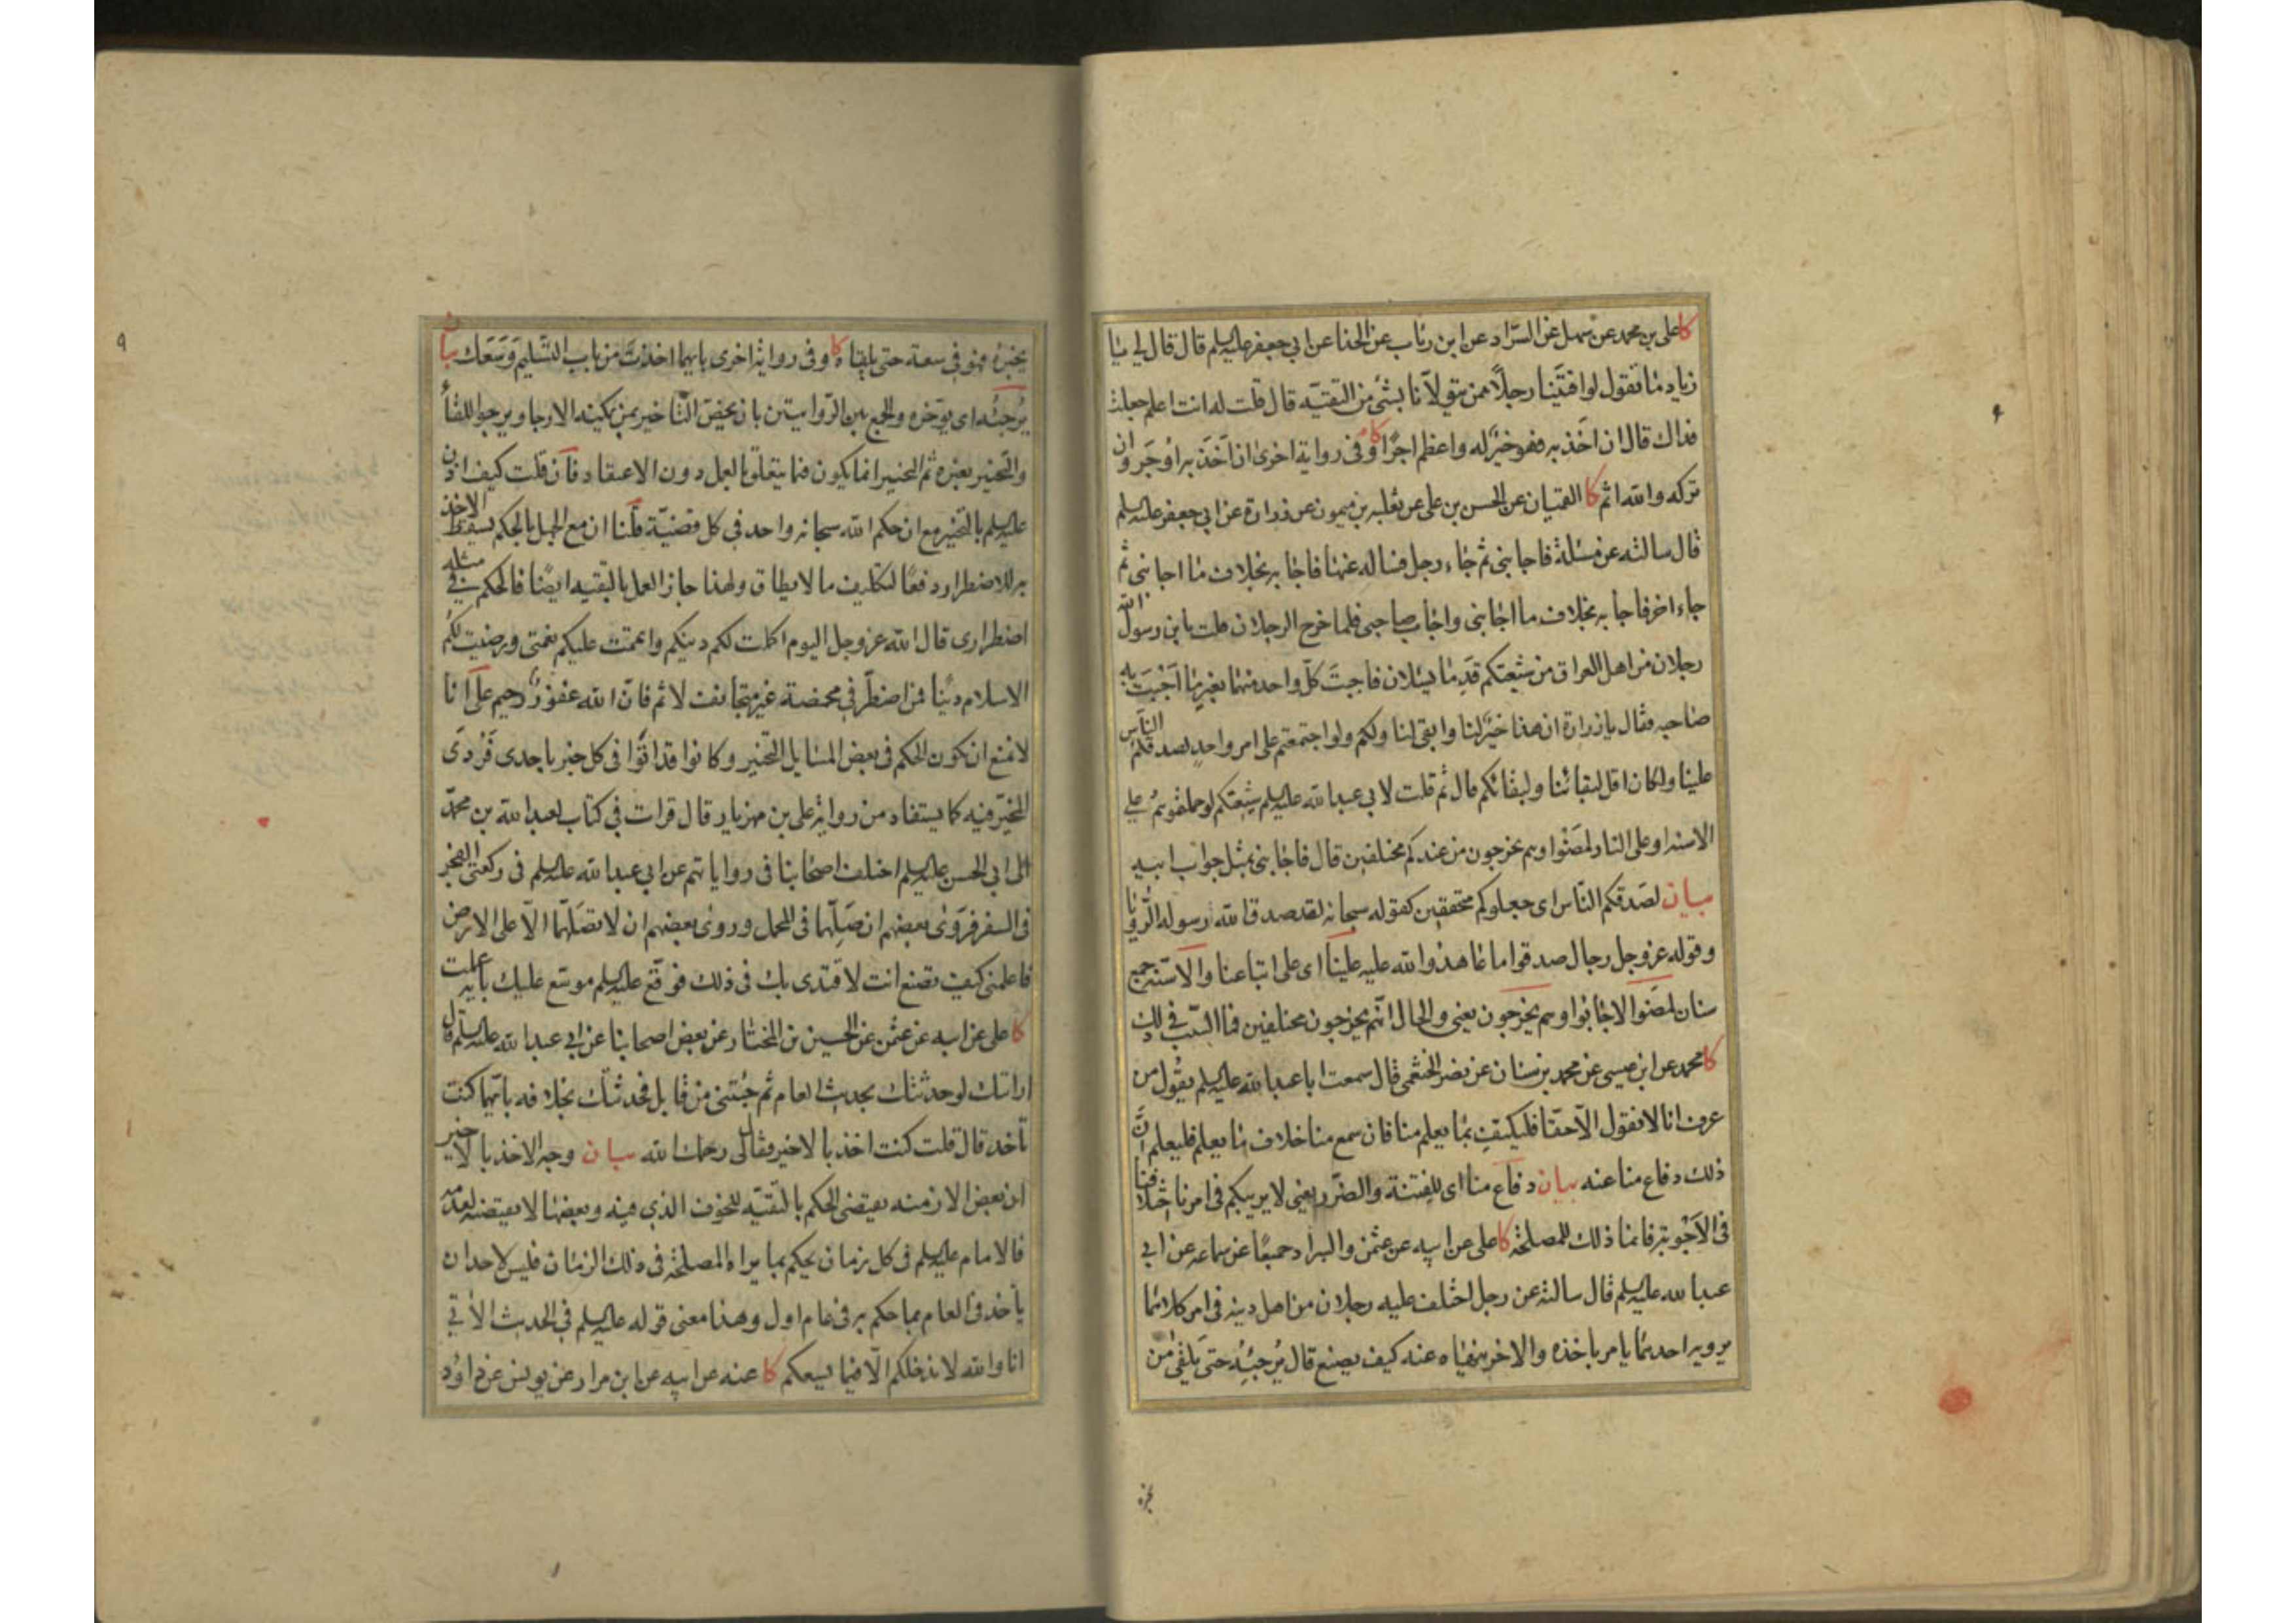 كا علي بن محمد عن سهل عن السراد عن ابن رئاب عن الحذا عن ابي جعفر عليه السلم قال قال لي يا
زياد ما تقول لو افتينا رجلاً ممن يتولانا بشئ من التقية قال قلت له انت اعلم جعلت
فداك قال ان اخذ به فهو خيرٌ له واعظم اجرًا كا وفي رواية اخرى ان اخذ به اوجر وان
تركه والله اثم كا القميان عن الحسن بن علي عن ثعلبه بن ميمون عن زرارة عن ابي جعفر عليه السلم
قال سالته عن مسئلة فاجابني ثم جاء رجل فساله عنها فاجابه بخلاف ما اجابني ثم
جاء اخر فاجابه بخلاف ما اجابني واجاب صاحبي فلما خرج الرجلان قلت يابن رسول الله
رجلان من اهل العراق من شيعتكم قدما يسئلان فاجبت كل واحد منهما بغير ما اجبت به
صاحبه فقال يا زرارة ان هذا خيرٌ لنا وابقى لنا ولكم ولو اجتمعتم على امر واحد لصدقكم الناس
علينا ولكان اقل لبقائنا ولبقائكم قال ثم قلت لابي عبد الله عليه السلم شيعتكم لو حملتموهم على
الاسنه او على النار لمضوا وهم يخرجون من عندكم مختلفين قال فاجابني بمثل جواب ابيه
بيان لصدقكم الناس اي جعلوكم محققين كقوله سبحانه لقد صدق الله رسوله الرؤيا
وقوله عز وجل رجال صدقوا ما عاهدوا الله عليه علينا اي على اتباعنا والاسنه جمع
سنان لمضوا لاجابوا وهم يخرجون يعني والحال انهم يخرجون مختلفين فما السبب في ذلك
كا محمد عن ابن عيسى عن محمد بن سنان عن نصر الخثعمي قال سمعت ابا عبد الله عليه السلم يقول من
عرف انا لا نقول الا حقا فليكتف بما يعلم منا فان سمع منا خلاف ما يعلم فليعلم ان
ذلك دفاع منا عنه بيان دفاع منا اي للفتنة والضرر يعني لا يريبكم في امرنا اختلافنا
في الاجوبة فانما ذلك للمصلحة كا علي عن ابيه عن عثمن والسراد جميعًا عن سماعه عن ابي
عبد الله عليه السلم قال سالته عن رجل اختلف عليه رجلان من اهل دينه في امر كلاهما
يرويه احدهما يامر باخذه والاخر ينهاه عنه كيف يصنع قال يرجئه حتى يلقى من
يخبره
يخبره فهو في سعة حتى يلقاه كا وفي رواية اخرى بايهما اخذت من باب التسليم وسعك بيان
يرجئه اي يؤخره والجمع بين الروايتين بان يخص التاخير بمن يمكينه الارجا ويرجوا اللقاء
والتخيير بغيره ثم التخيير انما يكون فيما يتعلق بالعمل دون الاعتقاد فان قلت كيف اذن
عليه السلم بالتخيير مع ان حكم الله سبحانه واحد في كل قضية قلنا ان مع الجهل بالحكم يسقط الاخذ
به للاضطرار دفعًا لتكليف ما لا يطاق ولهذا جاز العمل بالتقيه ايضًا فالحكم في مثله
اضطراري قال الله عز وجل اليوم اكملت لكم دينكم واتممت عليكم نعمتي ورضيت لكم
الاسلام دينًا فمن اضطر في مخمصة غير متجانف لاثم فان الله غفورٌ رحيم على انا
لا نمنع ان يكون الحكم في بعض المسايل التخيير وكانوا قد اتوا في كل خبر باحدى فردي
المخير فيه كما يستفاد من رواية علي بن مهزيار قال قرات في كتاب لعبد الله بن محمد
الى ابي الحسن عليه السلم اختلف اصحابنا في رواياتهم عن ابي عبد الله عليه السلم في ركعتي الفجر
في السفر فروى بعضهم ان صلهما في المحمل وروى بعضهم ان لا تصلهما الا على الارض
فاعلمني كيف تصنع انت لاقتدي بك في ذلك فوقع عليه السلم موسع عليك باية عملت
كا علي عن ابيه عن عثمن عن الحسين بن المختار عن بعض اصحابنا عن ابي عبد الله عليه السلم قال
ارايتك لو حدثتك بحديث العام ثم جئتني من قابل فحدثتك بخلافه بايهما كنت
تاخذ قال قلت كنت اخذ بالاخير فقال لي رحمك الله بيان وجه الاخذ بالاخير
ان بعض الازمنه يقتضي الحكم بالتقية للخوف الذي فيه وبعضها لا يقتضيه لعدمه
فالامام عليه السلم في كل زمان يحكم بما يراه المصلحة في ذلك الزمان فليس لاحد ان
ياخذ في العام بما حكم به في عام اول وهذا معنى قوله عليه السلم في الحديث الاتي
انا والله لا ندخلكم الا فيما يسعكم كا عنه عن ابيه عن ابن مرار عن يونس عن داود
٩